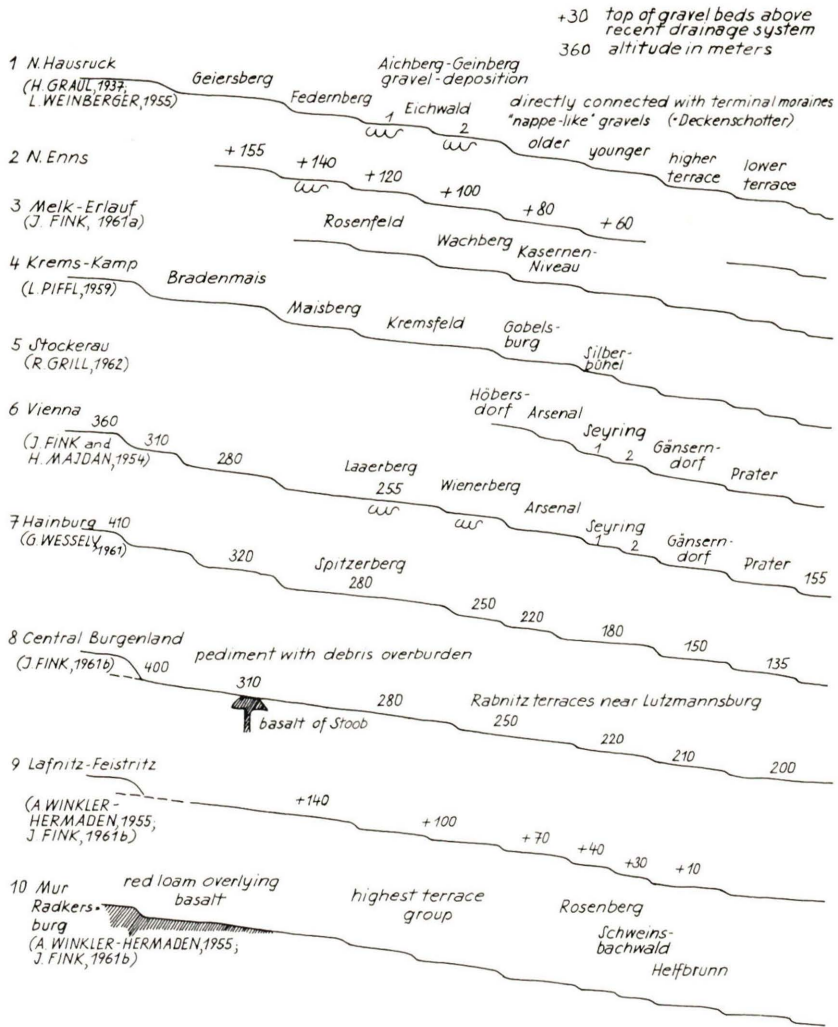 +30 top of gravel beds above
recent drainage system
360 altitude in meters
1 N.Hausruck
(H. GRAUL, 1937,
L. WEINBERGER, 1955)
Geiersberg
Federnberg
Aichberg-Geinberg
gravel-deposition
1
Eichwald
2
directly connected with terminal moraines
"nappe-like" gravels (=Deckenschotter)
older
younger
higher
terrace
lower
terrace
2 N.Enns
+155
+140
+120
+100
+80
+60
3 Melk-Erlauf
(J. FINK, 1961a)
Rosenfeld
Wachberg
Kasernen-
Niveau
4 Krems-Kamp
(L. PIFFL, 1959)
Bradenmais
Maisberg
Kremsfeld
Gobels-
burg
Silber-
bühel
5 Stockerau
(R. GRILL, 1962)
Höbers-
dorf
Arsenal
Seyring
1
2
Gänsern-
dorf
Prater
6 Vienna
(J. FINK and
H. MAJDAN, 1954)
360
310
280
Laaerberg
255
Wienerberg
Arsenal
Seyring
1
2
Gänsern-
dorf
Prater
155
7 Hainburg
(G. WESSELY, 1961)
410
320
Spitzerberg
280
250
220
180
150
135
8 Central Burgenland
(J. FINK, 1961b)
400
pediment with debris overburden
310
basalt of Stoob
280
Rabnitz terraces near Lutzmannsburg
250
220
210
200
9 Lafnitz-Feistritz
(A. WINKLER-
HERMADEN, 1955;
J. FINK, 1961b)
+140
+100
+70
+40
+30
+10
10 Mur
Radkers-
burg
(A. WINKLER-HERMADEN, 1955;
J. FINK, 1961b)
red loam overlying
basalt
highest terrace
group
Rosenberg
Schweins-
bachwald
Helfbrunn